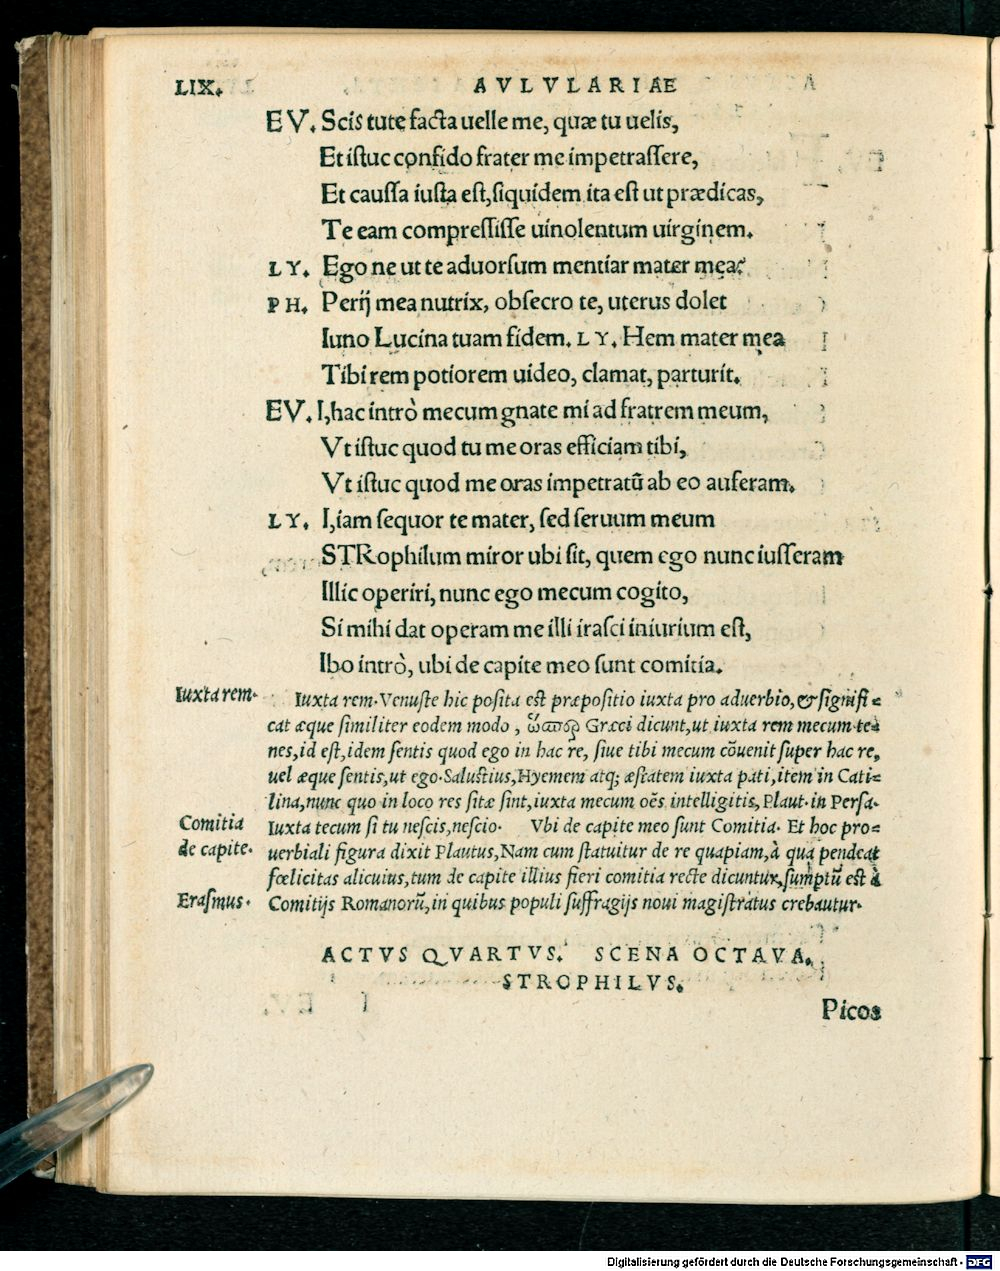 LIX. AVLVLARIAE
EV. Scis tute facta uelle me, quæ tu uelis,
Et istuc confido frater me impetrassere,
Et caussa iusta est, siquidem ita est ut prædicas,
Te eam compressisse uinolentum uirginem.
LY. Ego ne ut te aduorsum mentiar mater mea?
PH. Perij mea nutrix, obsecro te, uterus dolet
Iuno Lucina tuam fidem. LY. Hem mater mea
Tibi rem potiorem uideo, clamat, parturit.
EV. I, hac intrò mecum gnate mi ad fratrem meum,
Vt istuc quod tu me oras efficiam tibi,
Vt istuc quod me oras impetratũ ab eo auferam.
LY. I, iam sequor te mater, sed seruum meum
STRophilum miror ubi sit, quem ego nunc iusseram
Illic operiri, nunc ego mecum cogito,
Si mihi dat operam me illi irasci iniurium est,
Ibo intrò, ubi de capite meo sunt comitia.
Iuxta rem. Iuxta rem. Venuste hic posita est præpositio iuxta pro aduerbio, & signifi=
cat æque similiter eodem modo, Græci dicunt, ut iuxta rem mecum te=
nes, id est, idem sentis quod ego in hac re, siue tibi mecum cõuenit super hac re,
uel æque sentis, ut ego. Salustius, Hyemem atq; æstatem iuxta pati, item in Cati=
lina, nunc quo in loco res sitæ sint, iuxta mecum oẽs intelligitis, Plaut. in Persa.
Comitia Iuxta tecum si tu nescis, nescio. Vbi de capite meo sunt Comitia. Et hoc pro=
de capite. uerbiali figura dixit Plautus, Nam cum statuitur de re quapiam, à qua pendeat
fœlicitas alicuius, tum de capite illius fieri comitia recte dicuntur, sumptũ est à
Erasmus. Comitijs Romanorũ, in quibus populi suffragijs noui magistratus crebautur.
ACTVS QVARTVS. SCENA OCTAVA.
STROPHILVS.
Picos
Digitalisierung gefördert durch die Deutsche Forschungsgemeinschaft - DFG